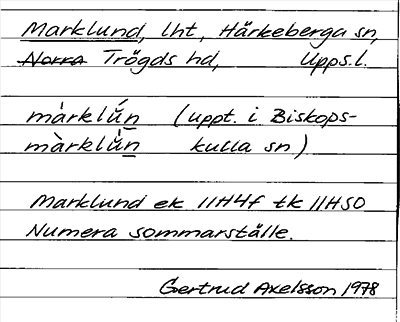 Marklund, lht, Härkeberga sn,
Norra Trögds hd, Upps.l.
màrklǘn (uppt. i Biskops-
màrklǜn kulla sn)
Marklund ek 11H4f tk 11H50
Numera sommarställe.
Gertrud Axelsson 1978